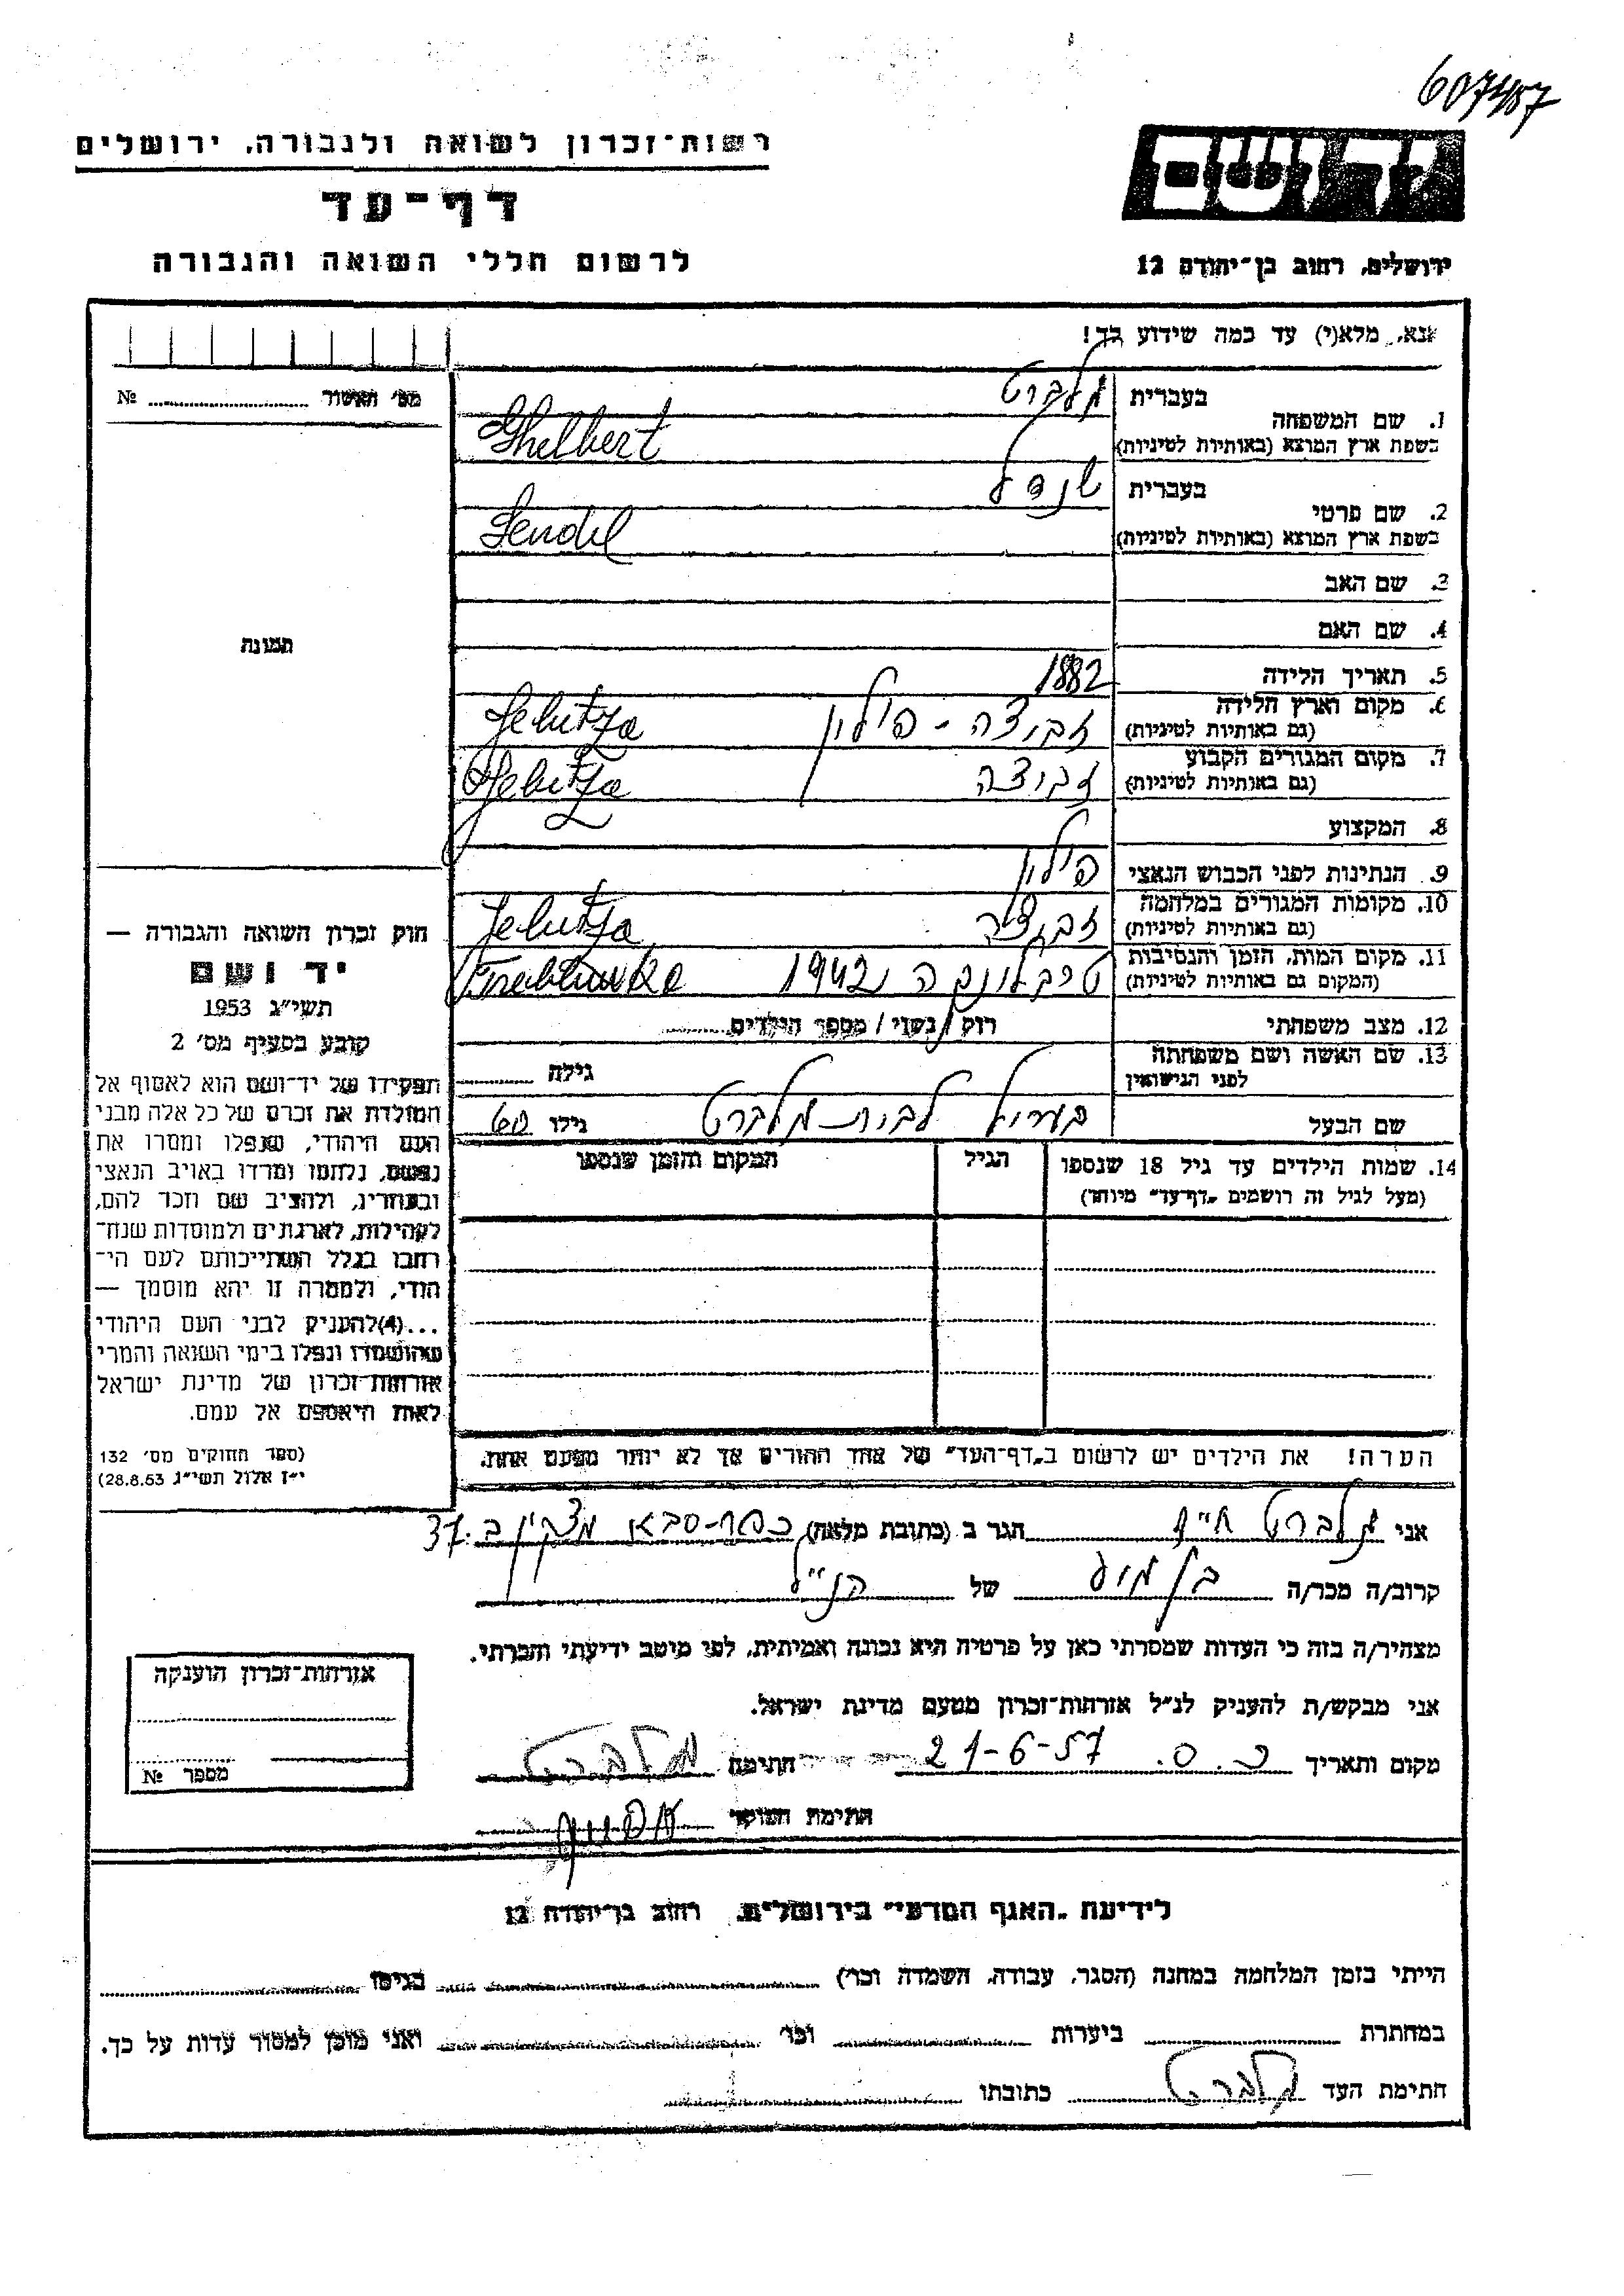 607487
רשות־זכרון לשואה ולגבורה, ירושלים
דף־עד
לרשום חללי השואה והגבורה
יד ושם
ירושלים, רחוב בן־יהודה 12
אנא, מלא(י) עד כמה שידוע לך!
מס׳ האשור ........ №
1. שם המשפחה
בעברית
גלברט
בשפת ארץ המוצא (באותיות לטיניות)
Ghelbert
2. שם פרטי
בעברית
שנדל
בשפת ארץ המוצא (באותיות לטיניות)
Sendel
3. שם האב
4. שם האם
5. תאריך הלידה 1882
6. מקום וארץ הלידה
(גם באותיות לטיניות)
זבוצה - פולין Jebutza
7. מקום המגורים הקבוע
(גם באותיות לטיניות)
זבוצה Jebutza
8. המקצוע
9. הנתינות לפני הכבוש הנאצי פולין
10. מקומות המגורים במלחמה
(גם באותיות לטיניות)
זבוצה Jebutza
11. מקום המות, הזמן והנסיבות
(המקום גם באותיות לטיניות)
טרבלינקה 1942
12. מצב משפחתי רוק / נשוי / מספר הילדים........
13. שם האשה ושם משפחתה
לפני הנישואין
גילה ........
שם הבעל לבית גלברט גילו 60
14. שמות הילדים עד גיל 18 שנספו
(מעל לגיל זה רושמים „דף־עד״ מיוחד)
הגיל
המקום והזמן שנספו
תמונה
חוק זכרון השואה והגבורה —
יד ושם
תשי״ג 1953
קובע בסעיף מס׳ 2
תפקידו של יד־ושם הוא לאסוף אל
המולדת את זכרם של כל אלה מבני
העם היהודי, שנפלו ומסרו את
נפשם, נלחמו ומרדו באויב הנאצי
ובעוזריו, ולהציב שם וזכר להם,
לקהילות, לארגונים ולמוסדות שנח־
רבו בגלל השתייכותם לעם הי־
הודי, ולמטרה זו יהא מוסמך —
...(4)להעניק לבני העם היהודי
שהושמדו ונפלו בימי השואה והמרי
אזרחות־זכרון של מדינת ישראל
לאות היאספם אל עמם.
(ספר החוקים מס׳ 132
י״ז אלול תשי״ג 28.8.53)
הערה! את הילדים יש לרשום ב„דף־העד״ של אחד ההורים אך לא יותר מפעם אחת.
אני גלברט חיים הגר ב (כתובת מלאה) כפר-סבא 37
קרוב/ה מכר/ה בן דוד של הנ״ל
מצהיר/ה בזה כי העדות שמסרתי כאן על פרטיה היא נכונה ואמיתית, לפי מיטב ידיעתי והכרתי.
אני מבקש/ת להעניק לנ״ל אזרחות־זכרון מטעם מדינת ישראל.
מקום ותאריך כ.ס. 21-6-57 חתימה גלברט
חתימת הפוקד
אזרחות־זכרון הוענקה
מספר №
לידיעת „האגף המדעי״ בירושלים, רחוב בן־יהודה 12
הייתי בזמן המלחמה במחנה (הסגר, עבודה, השמדה וכו׳) ........ בגיטו ........
במחתרת ........ ביערות ........ וכו׳ ........ ואני מוכן למסור עדות על כך.
חתימת העד גלברט כתובתו ........